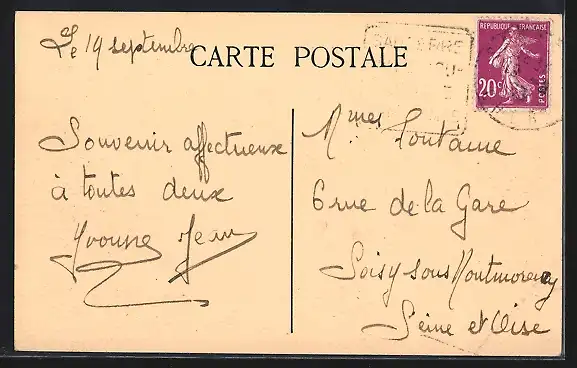 Le 19 septembre
CARTE POSTALE
RÉPUBLIQUE FRANÇAISE
20c
POSTES
Souvenir affectueux
à toutes deux
Yvonne Jean
Mmes Fontaine
6 rue de la Gare
Soisy sous Montmorency
Seine et Oise